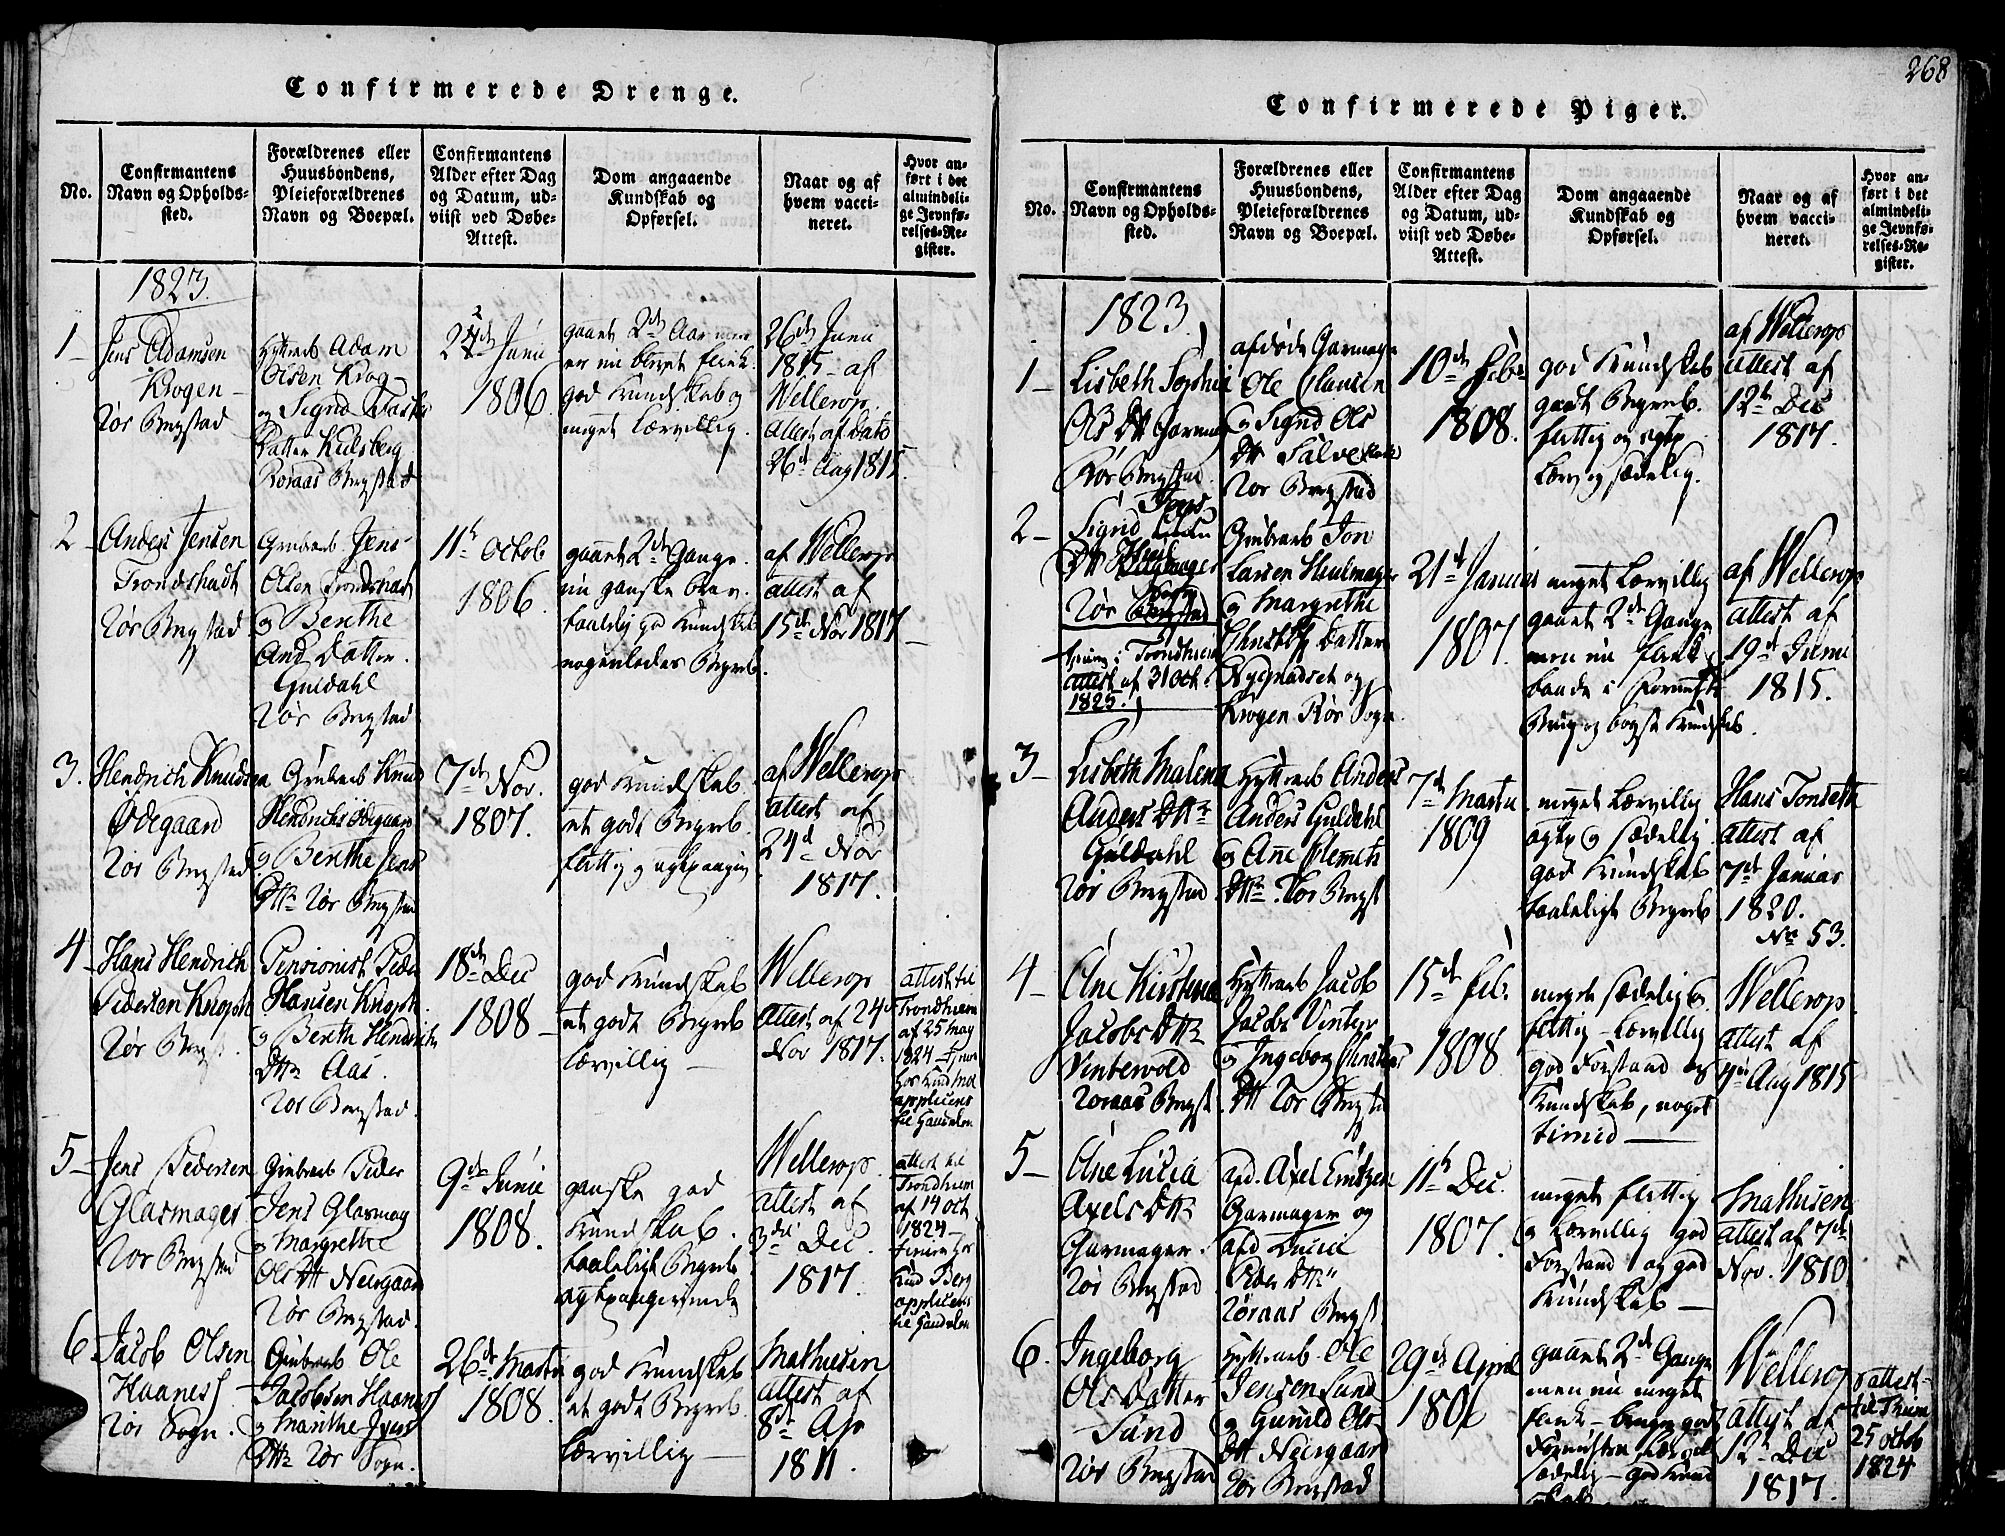 Confirmerede Drenge.
No.
Confirmantens
Navn og Opholds-
sted.
Forældrenes eller
Huusbondens,
Pleieforældrenes
Navn og Boepæl.
Confirmantens
Alder efter Dag
og Datum, ud-
viist ved Døbe-
Attest.
Dom angaaende
Kundskab og
Opførsel.
Naar og af
hvem vacci-
neret.
Hvor an-
ført i det
almindeli-
ge Jevnfø-
relses-Re-
gister.
1823.
1
Jens Adamsen
Krogen
Rør Bergstad
Hyttearb Adam
Olsen Krog
og Sigrid
Datter Kulsberg
Roraas Bergstad
Junii
1806
gaaet 2de
er nu blevet flink
god Kundskab og
meget lærvillig.
26de Junii
1815 af
Wellerop
attest af dato
26d Aug 1815
2
Anders Jensen
Trondshadt
Rør Bergstad
Grubearb. Jens
Olsen Trondshadt
og Benthe
And. Datter
Guldahl
Rør Bergstad
11te Octob
1806.
gaaet 2de Gange
nu ganske brav
taalelig god Kundskab
nogenledes Begreb.
af Wellerop
attest af
15de Nov 1817
3.
Hendrich Knudsen
Ødegaard
Rør Bergstad
Grubearb Knud
Hendrichs Ødegaard
og Benthe Jens
Dttr Rør Bergstad
7de Nov.
1807.
god Kundskab
et godt Begreb.
flittig og agtpaagiv
af Wellerop
attest af
24d Nov
1817.
4
Hans Hendrich
Pedersen Knoph
Rør Bergst.
Pensionist Peder
Hansen Knoph
og Benth Hendrichs
Dttr Aas.
Rør Bergstad.
18de Dec
1808
god Kundskab
et godt Begreb
lærvillig
Wellerop
attest af 24d
Nov 1817.
attest til
Trondhiem
af 25 May
1824
til Gaudalen
5
Jens Pedersen
Glasmager
Rør Bergstad
Grubearb Peder
Jens Glasmag
og Margrethe
Ols Dtt Neergaard
Rør Bergstad.
9de Junii
1808.
ganske god
Kundskab.
taaleligt Begreb
agtpaagivende
Wellerop
attest af
3die Dec.
1817.
attest til
Trondhiem
af 14 oct
1824
til Gaudalen
6
Jacob Olsen
Haanes
Rør Sogn.
Grubearb Ole
Jacobsen Haanes
og Marithe Jens
Dttr Rør Sogn.
26de Martii
1808.
god Kundskab
et godt Begreb
lærvillig
Mathiesen
attest af
8de Apr
1811.
268
Confirmerede Piger.
No.
Confirmantens
Navn og Opholds-
sted.
Forældrenes eller
Huusbondens,
Pleieforældrenes
Navn og Boepæl.
Confirmantens
Alder efter Dag
og Datum, ud-
viist ved Døbe-
Attest.
Dom angaaende
Kundskab og
Opførsel.
Naar og af
hvem vacci-
neret.
Hvor an-
ført i det
almindeli-
ge Jevnfø-
relses-Re-
gister.
1823.
1
Lisbeth Sophia
Ols Dtt Garmag
Rør Bergstad
afdøde Garmager
Ole Clausen
og Sigrid Ols
Dtt
Rør Bergstad
10de Febr
1808.
god Kundskab
godt Begreb.
flittig og agtp
lærv og sædelig.
af Wellerop
attest af
12te Dec
1817.
2
Sigrid
Rør
Trondhiem
attest af 31 Oct.
1825.
Grubearb Jon
Larsen Hiulmager
og Margrethe
Christoph Datter
Nygaardset og
Krogen Rør Sogn.
21de Januar
1807.
meget lærvillig
gaaet 2de Gange
men nu flink
baade i Fornufts
Brug og bogst Kundskab.
af Wellerop
attest af
19de Junii
1815.
3
Lisbeth Malena
Anders Dttr
Guldahl
Rør Bergstad
Hyttearb Anders
Anders Guldahl
og Ane Clemets
Dttr. Rør Bergst
7de Martii
1809
meget lærvillig
agtp og sædelig
god Kundskab
taaleligt Begreb
Hans Tonseth
attest af
7de Januar
1820.
No 53.
4
Ane Kirstina
Jacobs Dttr
Vintervold
Roraas Bergst
Hyttearb Jacob
Jacobs Vinter
og Ingeborg Christians
Dtt Rør Bergst
15de Feb.
1808
meget sædelig og
flittig – lærvillig
god Forstand og
Kundskab, noget
timid
Wellerop
attest af
Aug 1815
5
Ane Lucia
Axels Dttr
Garmager.
Rør Bergstad
afd. Axel Entzen
Garmager og
afd Lucie
Peder Dttr
Røraas Bergst
11te Dec.
1807.
meget flittig
og lærvillig god
Forstand og god
Kundskab
Mathiesen
attest af 7de
Nov. 1810
6.
Ingeborg
Ols Datter
Sund
Rør Bergstad
Hyttearb Ole
Jensen Sund
og Gunild Ols
Dtt Neergaard
Rør Bergstad
29de April
1806
gaaet 2de Gange
men nu meget
flink
sædelig – god Kund
skab
Wellerop
attest af
12te Dec
1817.
attest
til Thiem
25 octob
1824